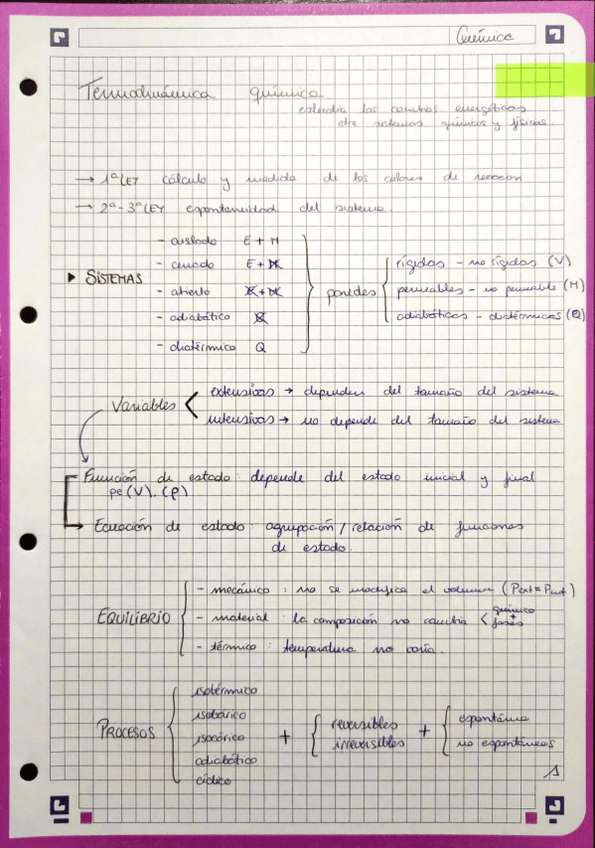 Química
Termodinámica química
estudia los cambios energéticos
etre sistemas químicos y físicos.
→ 1ª LEY cálculo y medida de los calores de reacción
→ 2ª-3ª LEY espontaneidad del sistema.
▶ SISTEMAS
- aislado E + M
- cerrado E + M
- abierto E + M
- adiabático Q
- diatérmico Q
paredes
rígidas - no rígidas (V)
permeables - no permeable (M)
adiabáticas - diatérmicas (Q)
Variables
extensivas → dependen del tamaño del sistema
intensivas → no depende del tamaño del sistema
Función de estado: depende del estado inicial y final
pe (V), (P)
Ecuación de estado: agrupación / relación de funciones
de estado.
EQUILIBRIO
- mecánico : no se modifica el volumen (Pext = Pint)
- material : la composición no cambia < químico + fases
- térmico : temperatura no varía.
PROCESOS
isotérmico
isobárico
isocórico
adiabático
cíclico
+
reversibles
irreversibles
+
espontáneo
no espontáneos
1